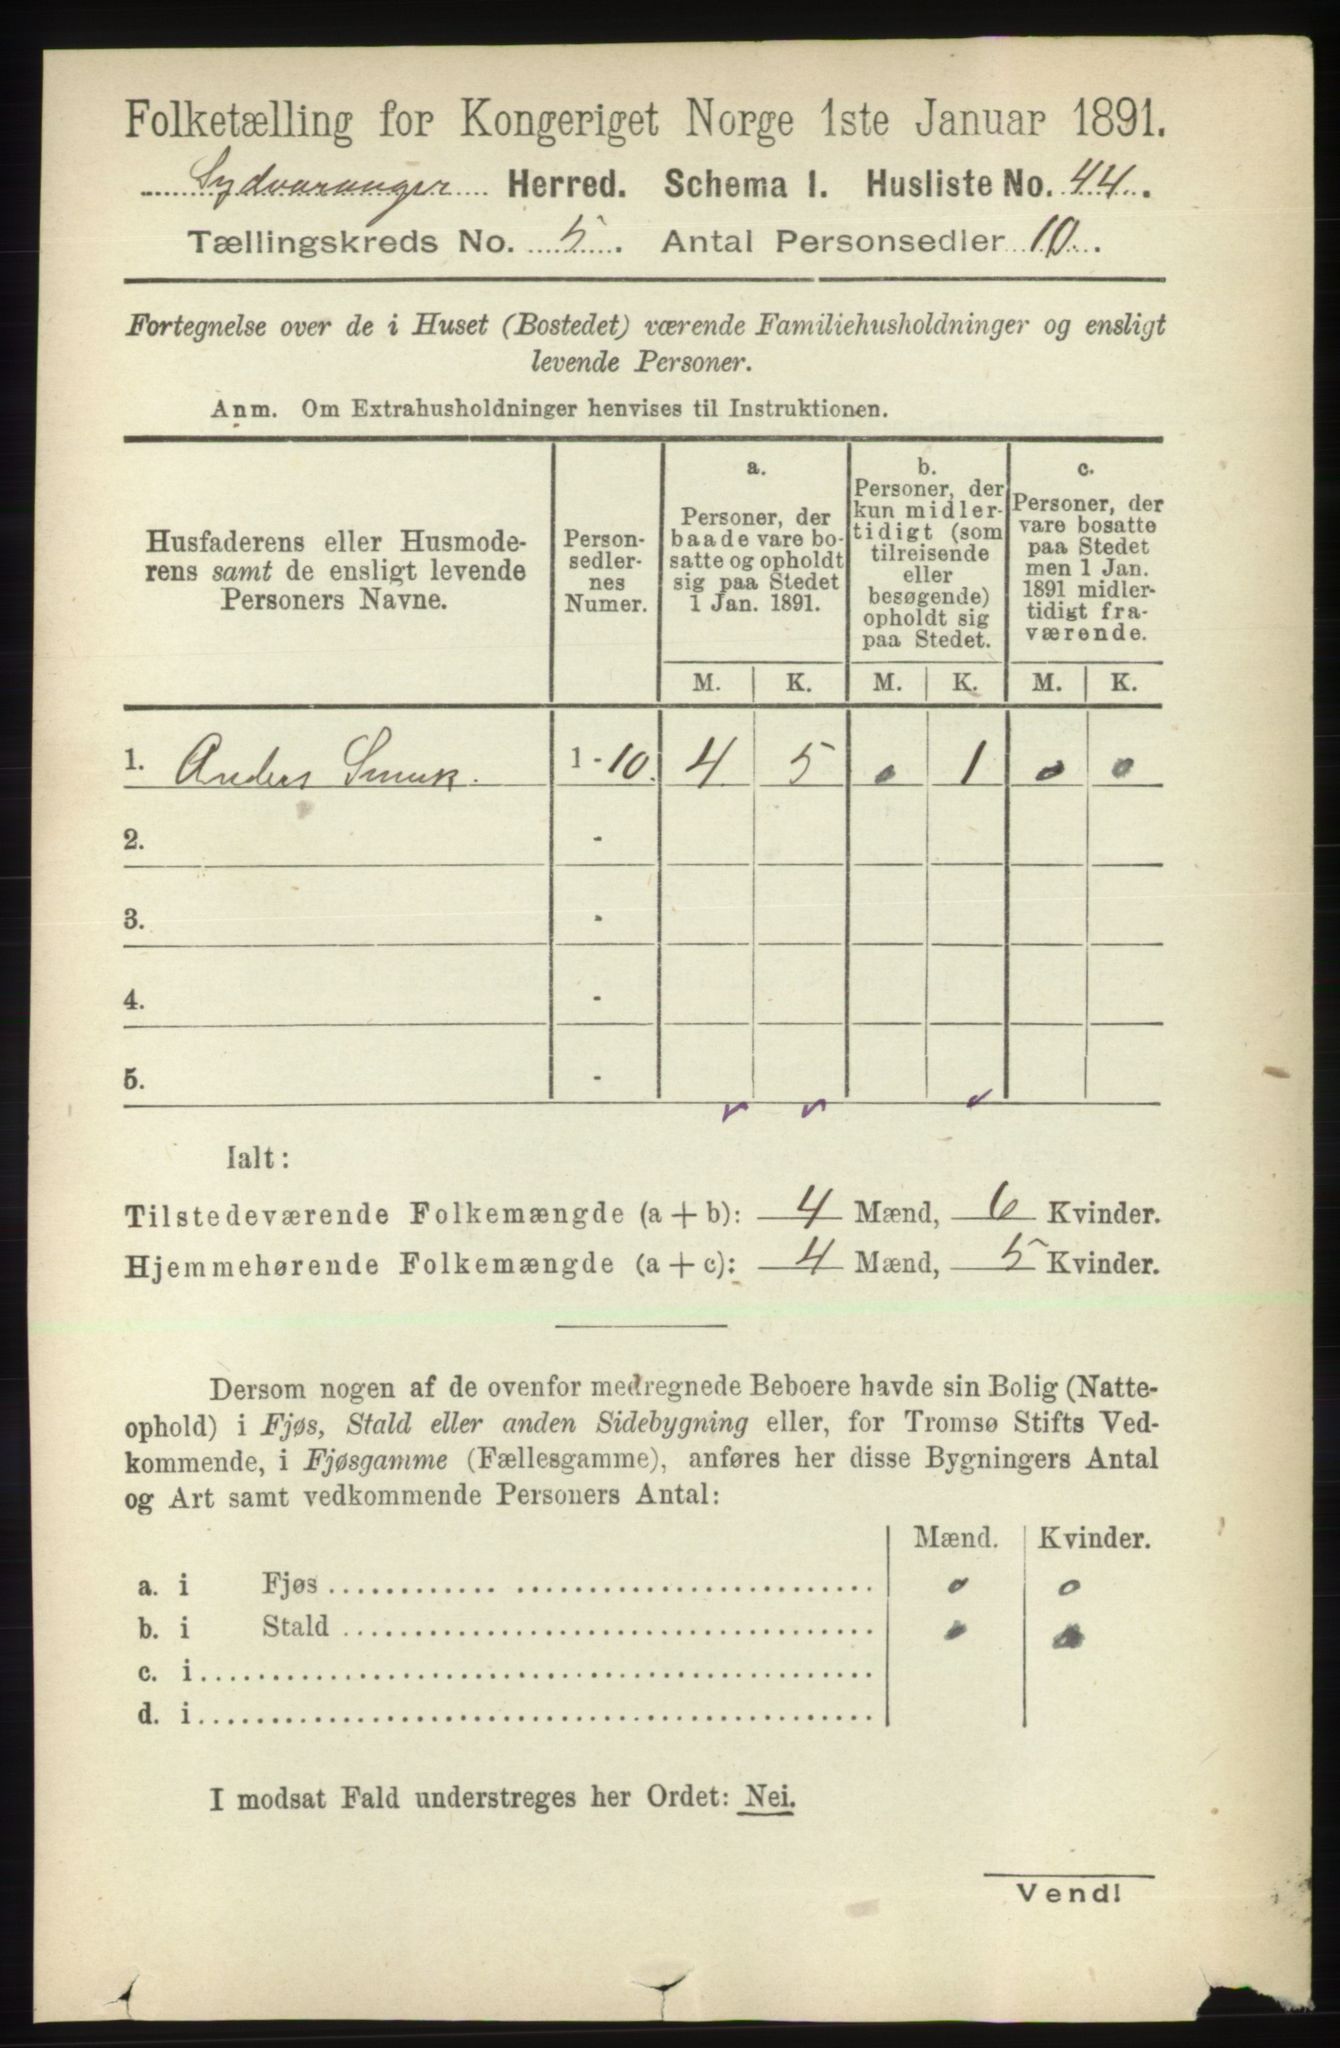 Folketælling for Kongeriget Norge 1ste Januar 1891.
Sydvaranger Herred. Schema I. Husliste No. 44.
Tællingskreds No. 5. Antal Personsedler 10.
Fortegnelse over de i Huset (Bostedet) værende Familiehusholdninger og ensligt
levende Personer.
Anm. Om Extrahusholdninger henvises til Instruktionen.
Husfaderens eller Husmode-
rens samt de ensligt levende
Personers Navne.
Person-
sedler-
nes
Numer.
a.
Personer, der
baade vare bo-
satte og opholdt
sig paa Stedet
1 Jan. 1891.
b.
Personer, der
kun midler-
tidigt (som
tilreisende
eller
besøgende)
opholdt sig
paa Stedet.
c.
Personer, der
vare bosatte
paa Stedet
men 1 Jan.
1891 midler-
tidigt fra-
værende.
M. K. M. K. M. K.
1. Anders Smuk. 1 - 10. 4 5 0 1 0 0
2. -
3. -
4. -
5. -
Ialt:
Tilstedeværende Folkemængde (a + b): 4 Mænd, 6 Kvinder.
Hjemmehørende Folkemængde (a + c): 4 Mænd, 5 Kvinder.
Dersom nogen af de ovenfor medregnede Beboere havde sin Bolig (Natte-
ophold) i Fjøs, Stald eller anden Sidebygning eller, for Tromsø Stifts Ved-
kommende, i Fjøsgamme (Fællesgamme), anføres her disse Bygningers Antal
og Art samt vedkommende Personers Antal:
Mænd. Kvinder.
a. i Fjøs 0 0
b. i Stald 0 0
c. i
d. i
I modsat Fald understreges her Ordet: Nei.
Vend!